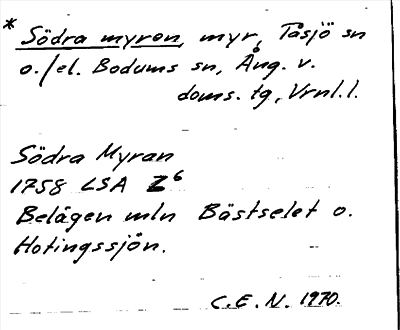 * Södra myren, myr, Tåsjö sn
o./el. Bodums sn, Ång. v.
doms. tg, Vrnl. l.
Södra Myran
1758 LSA Z6
Belägen mln Bästselet o.
Hotingssjön.
C.E.N. 1970.